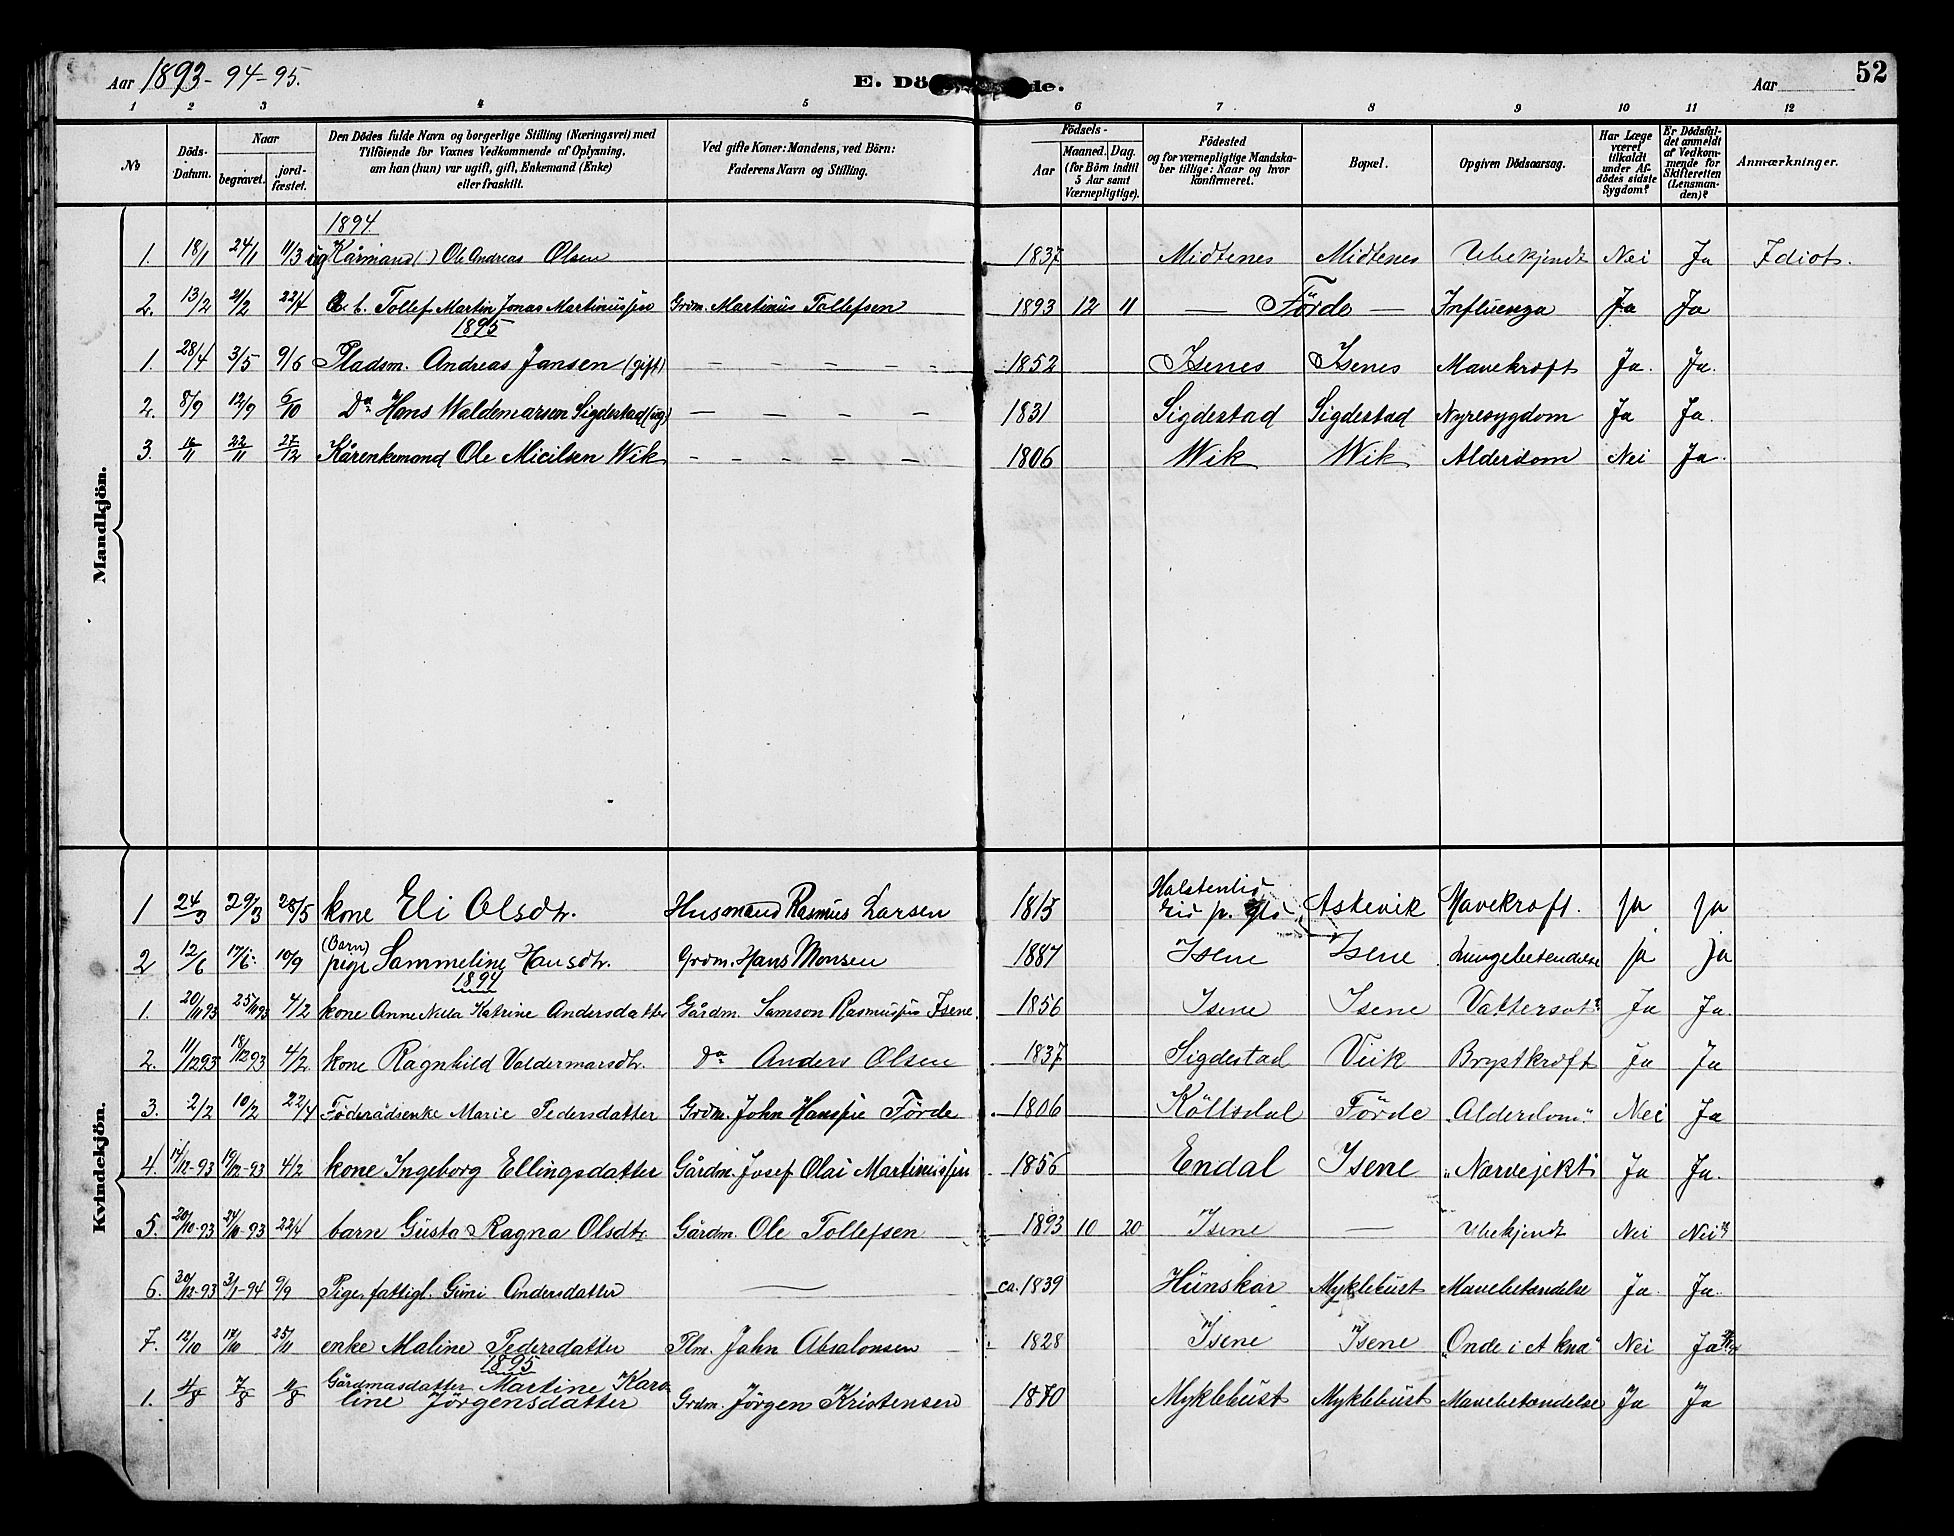 Aar 1893-94-95.
E. Dö de.
Aar
52
1 2 3 4 5 6 7. 8 9 10 11 12
No
Döds-Datum.
Naar
begravet.
jord-fæstet.
Den Dödes fulde Navn og borgerlige Stilling (Næringsvei) med
Tilföiende for Voxnes Vedkommende af Oplysning,
om han (hun) var ugift, gift, Enkemand (Enke)
eller fraskilt.
Ved gifte Koner: Mandens, ved Börn:
Faderens Navn og Stilling.
Födsels-
Aar
Maaned. Dag.
(for Börn indtil
5 Aar samt
Værnepligtige).
Födested
og for værnepligtige Mandska-
ber tillige: Naar og hvor
konfirmeret.
Bopæl.
Opgiven Dödsaarsag.
Har Læge
været
tilkaldt
under Af-
dödes sidste
Sygdom?
Er Dödsfal-
det anmeldt
af Vedkom-
mende for
Skifteretten
(Lensman-
den)?
Anmærkninger.
Mandkjön.
1894
1. 18/1 24/1 11/3 ug Kårmand Ole Andreas Olsen 1837 Midtenes Midtenes Ubekjendt Nei Ja Idiot.
2. 13/2 21/2 22/4 Tollef Martin Jonas Martinussøn Grdm. Martinus Tollefsen 1893 12 11 — Förde — Influenza Ja Ja
1895
1. 28/4 3/5 9/6 Pladsm. Andreas Jansen (gift) – – – – – – 1852 Isenes Isenes Mavekræft Ja. Ja.
2. 8/9 12/9 6/10 Do Hans Waldemarsen Sigdestad (ug) – – – – – 1831 Sigdestad Sigdestad Nyresygdom Ja Ja.
3. 16/11 22/11 27/12 Kårenkemand Ole Micilsen Wik – – – – – 1806 Wik Wik Alderdom Nei Ja.
Kvindekjön.
1 24/3 29/3 28/5 kone Eli Olsdtr. Husmand Rasmus Larsen 1815 Halstenlid Eid p. Askevik Mavekræft. ja ja
2 12/6 17/6 10/9 (Barn) pige Sammeline Hansdtr. Grdm. Hans Monsen 1887 Isene Isene Lungebetendelse ja ja
1894
1. 20/11 93 25/11 93 4/2 kone Anne Nicla Katrine Andersdatter Gårdm. Samson Rasmussøn Isene. 1856 Isene Isene Vattersot? Ja Ja.
2. 11/12 93 18/12 93 4/2 kone Ragnhild Valdermarsdtr. do Anders Olsen 1837 Sigdestad Viik Brystkræft Ja Ja
3. 2/2 10/2 22/4 Føderådsenke Marie Pedersdatter Grdm. John Hanssøn Förde 1806 Köllsdal Förde „Alderdom“. Nei Ja
4. 14/12-93 19/12-93 4/2 kone Ingeborg Ellingsdatter Gårdm. Josef Olai Martinussøn 1856 Endal Isene „Nærvejekt“ Ja Ja.
5. 20/10-93 24/10-93 22/4 barn Gusta Ragna Olsdtr. Gårdm. Ole Tollefsen 1893 10 20 Isene — Ubekjendt Nei Nei
6. 30/12-93 3/1-94 9/9 Pige, fattigl. Guni Andersdatter — ca. 1839 Hunskar Myklebust Mavebetændelse Ja. Ja.
7. 12/10 17/10 25/11 enke Maline Pedersdatter Plm. Jahn Absalonsen 1828 Isene Isene „Onde i et kna“ Nei Ja
1895
1. 4/8 7/8 11/8 Gårdmasdatter Martine Karo-
line Jörgensdatter Grdm. Jörgen Kristensen 1870 Myklebust Myklebust Mavebetændelse Ja Ja